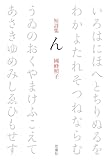 いろはにほへとちりぬるを
わかよたれそつねならむ
短詩集
ん
國峰照子
思潮社
うゐのおくやまけふこえて
あさきゆめみしゑひもせす